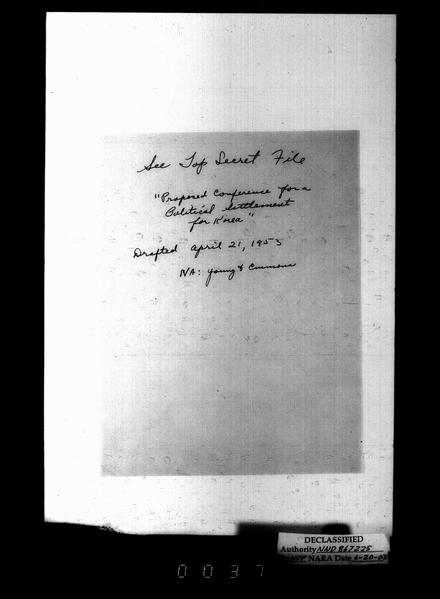 See Top Secret File
"Proposed Conference for a
Political Settlement
for Korea"
Drafted April 21, 1953
NA: Young & Emmons
DECLASSIFIED
Authority NND 867225
NARA Date 6-20-02
0037